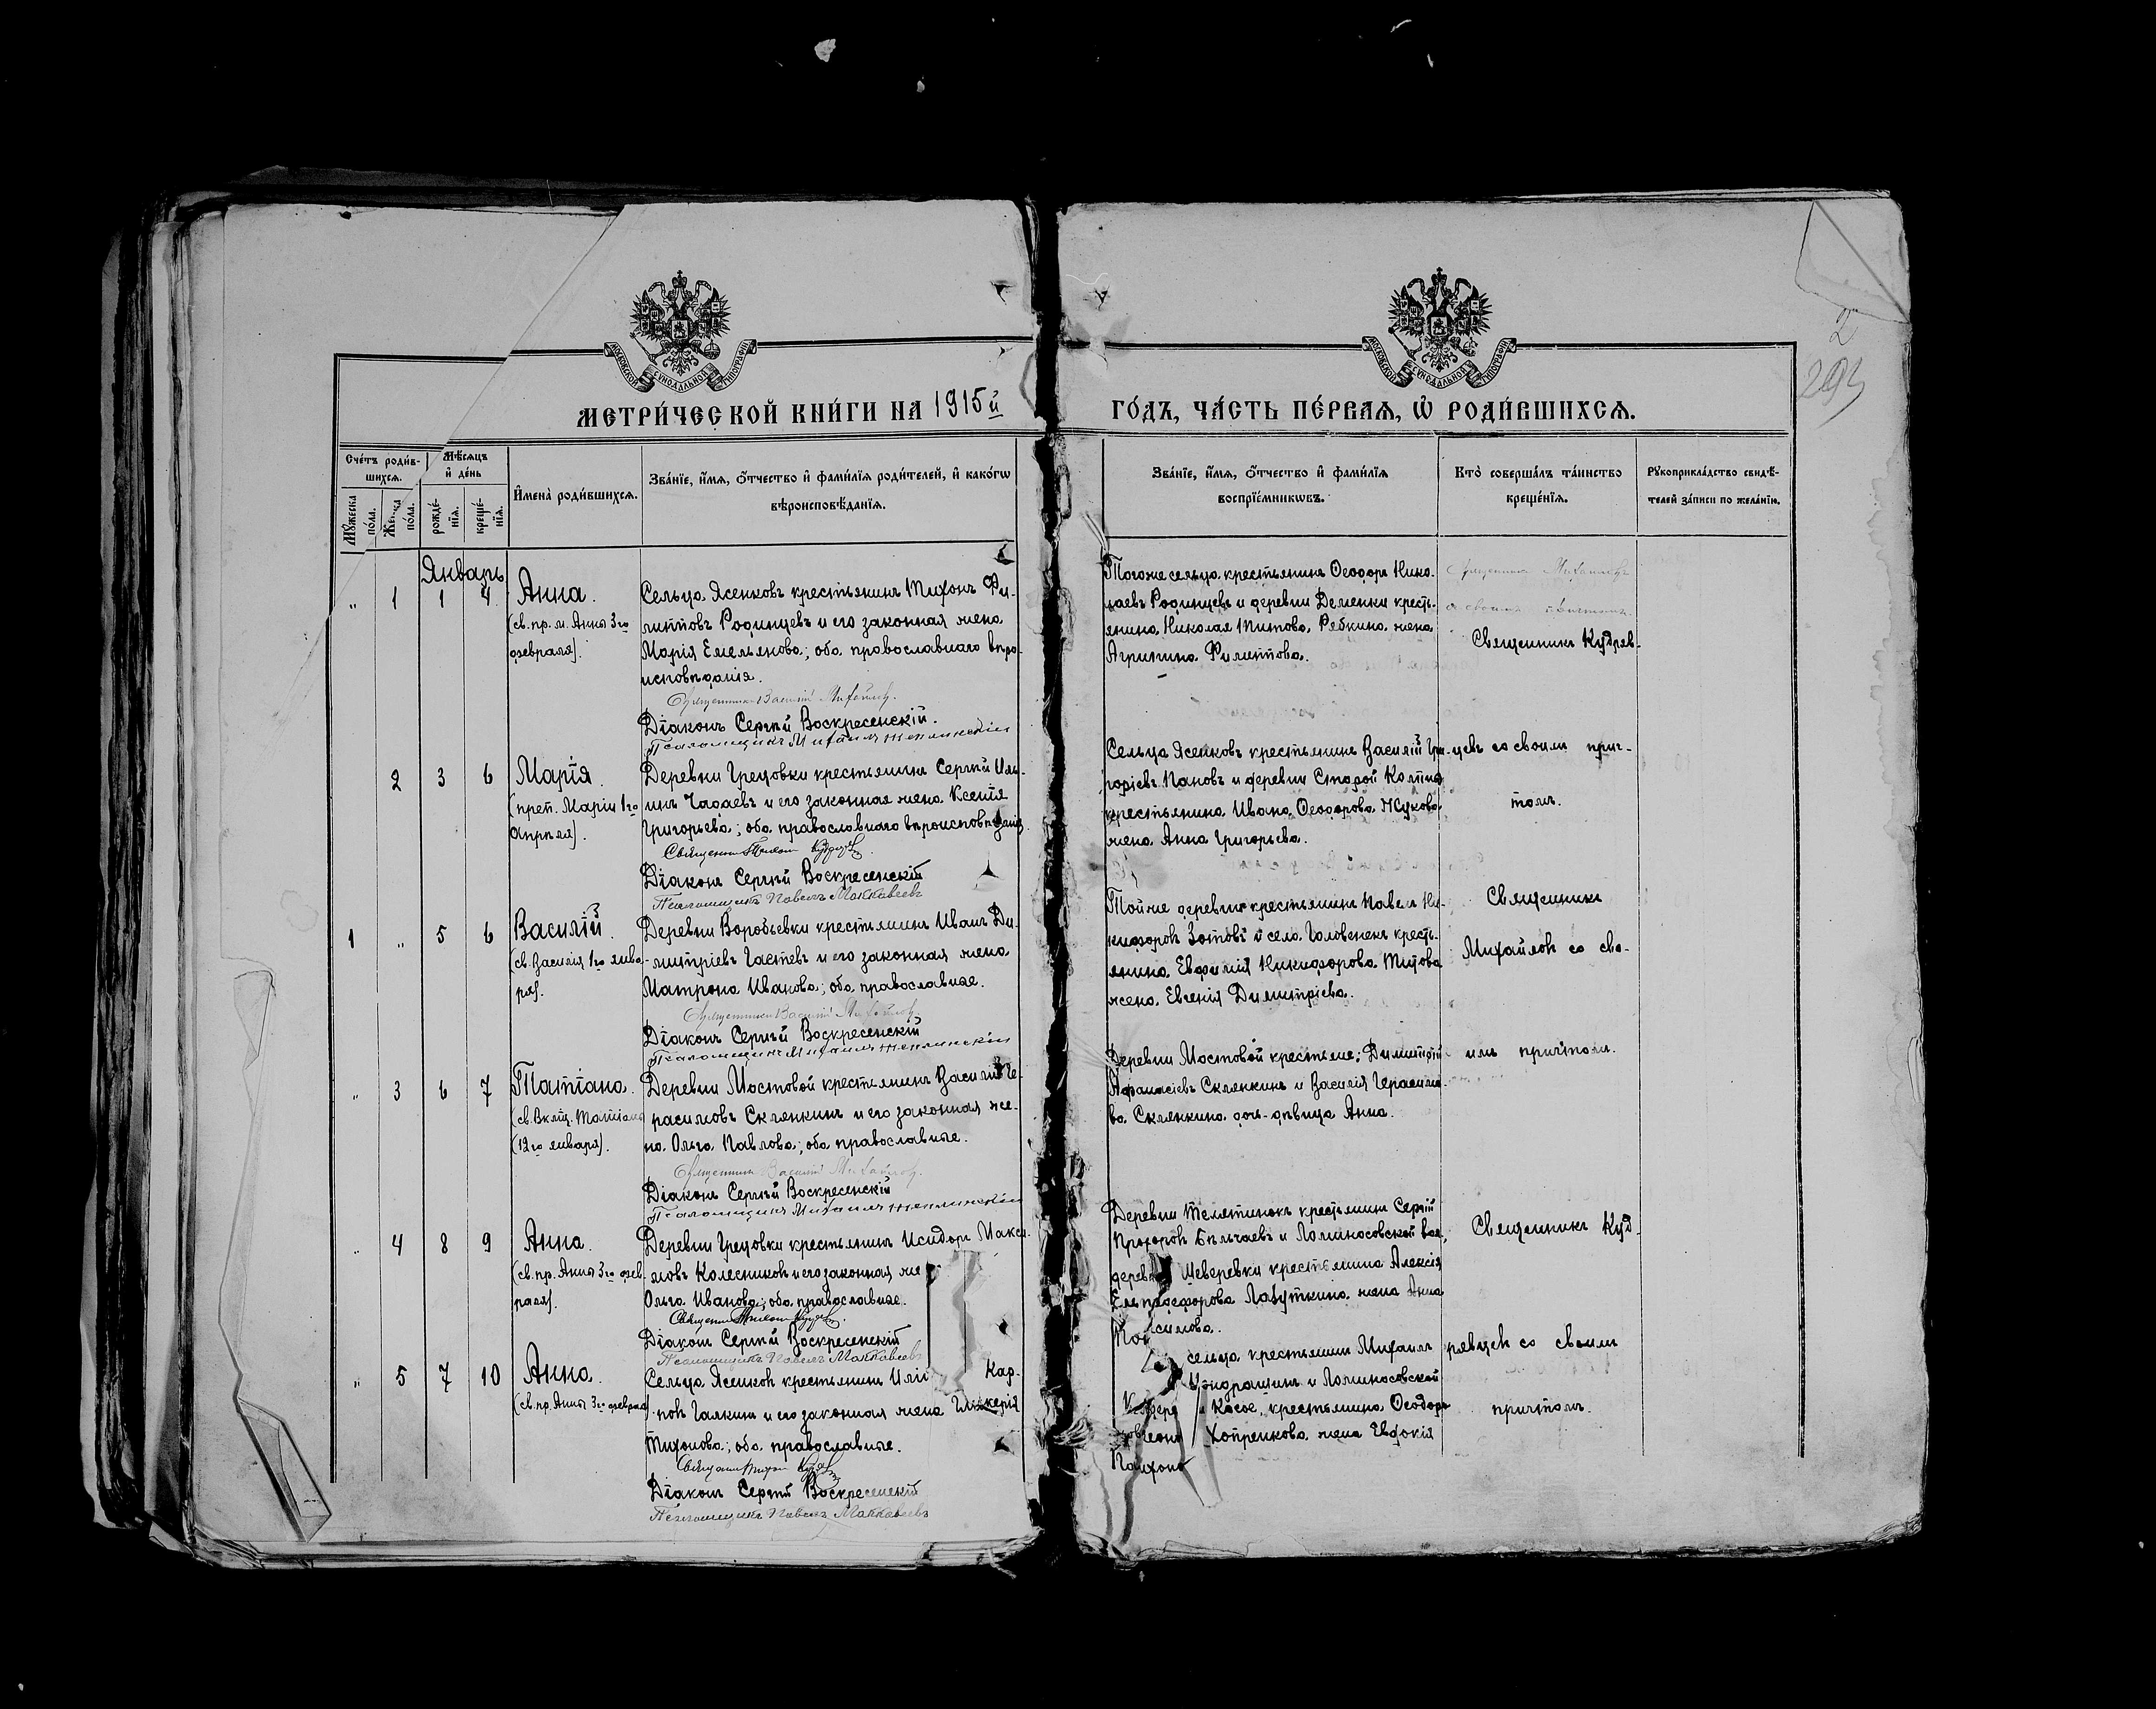 МОСКОВСКОЙ СѴНОДАЛЬНОЙ ТИПОГРАФІИ
МОСКОВСКОЙ СѴНОДАЛЬНОЙ ТИПОГРАФІИ
2
293
МЕТРИ́ЧЕСКОЙ КНИ́ГИ НА 1915й
ГО́ДЪ, ЧА́СТЬ ПЕ́РВАѦ, Ѽ РОДИ́ВШИХСѦ.
Сче́тъ роди́в-
шихсѧ.
Мꙋ́жеска
по́ла.
Же́нска
по́ла.
Мѣ́сѧцъ
и҆ де́нь
рожде́-
нїѧ.
креще́-
нїѧ.
И҆мена̀ роди́вшихсѧ.
Зва́нїе, и҆́мѧ, ѻ҆́тчество и҆ фами́лїѧ роди́телей, и҆ како́гѡ
вѣроисповѣ́данїѧ.
Зва́нїе, и҆́мѧ, ѻ҆́тчество и҆ фами́лїѧ
воспрїе́мникѡвъ.
Кто̀ соверша́лъ та́инство
креще́нїѧ.
Рꙋкоприкла́дство свидѣ́-
телей за́писи по жела́нїю.
Январь
„ 1 1 4
Анна.
(св. пр. м. Анны 3го
февраля).
Сельца Ясенковъ крестьянинъ Тихонъ Фи-
липповъ Родинцевъ и его законная жена
Марія Емельянова; оба православнаго вѣро-
исповѣданія.
Священникъ Василій Михайловъ.
Діаконъ Сергѣй Воскресенскій.
Псаломщикъ Михаилъ
Тогоже сельца крестьянинъ Ѳеодоръ Нико-
лаевъ Родинцевъ и деревни Деменки кресть-
янина Николая Титова Рябкина жена
Агрипина Филиппова.
Священникъ Михайловъ
со своимъ причтомъ.
Священникъ Кудряв-
2 3 6
Марія.
(преп. Маріи 1го
Апрѣля).
Деревни Грецовки крестьянинъ Сергѣй Иль-
инъ Чадаевъ и его законная жена Ксенія
Григорьева; оба православнаго вѣроисповѣданія.
Священникъ Тихонъ
Діаконъ Сергѣй Воскресенскій
Псаломщикъ Павелъ Маккавеевъ
Сельца Ясенковъ крестьянинъ Василій Гри-
горіевъ Пановъ и деревни Старой Колпны
крестьянина Ивана Ѳеодорова Жукова
жена Анна Григорьева.
цевъ со своимъ прич-
томъ.
1 „ 5 6
Василій.
(св. Василія 1го янва-
ря).
Деревни Воробьевки крестьянинъ Иванъ Ди-
митріевъ Гастевъ и его законная жена
Матрона Иванова; оба православные.
Священникъ Василій Михайловъ.
Діаконъ Сергѣй Воскресенскій
Псаломщикъ Михаилъ
Тойже деревни крестьянинъ Павелъ Ни-
кифоровъ Зотовъ и села Головенекъ кресть-
янина Евфимія Никифорова Титова
жена Евгенія Димитріева.
Священникъ
Михайловъ со сво-
„ 3 6 7
Татіана.
(св. Вклмц. Татіаны
(12го января).
Деревни Мостовой крестьянинъ Василій Ге-
расимовъ Склянкинъ и его законная же-
на Ольга Павлова; оба православные.
Священникъ Василій Михайловъ.
Діаконъ Сергѣй Воскресенскій
Псаломщикъ Михаилъ
Деревни Мостовой крестьяне: Димитрій
Афанасіевъ Склянкинъ и Василія Герасимо-
ва Склянкина дочь-дѣвица Анна.
имъ причтомъ.
„ 4 8 9
Анна.
(св. пр. Анны 3го фев-
раля).
Деревни Грецовки крестьянинъ Исидоръ Макси-
мовъ Колесниковъ и его законная же
Ольга Иванова; оба православные.
Священникъ Тихонъ
Діаконъ Сергѣй Воскресенскій
Псаломщикъ Павелъ Маккавеевъ
Деревни Телятинокъ крестьянинъ Сергѣй
Прохоровъ Бѣльчаевъ и Ломиносовской вол,
дерев Шеверевки крестьянина Алексія
Лазуткина жена Анна
симова.
Священникъ Куд-
„ 5 7 10
Анна.
(св. пр. Анны 3го февраля)
Сельца Ясенковъ крестьянинъ Или Кар-
повъ Галкинъ и его законная жена Гликерія
Тихонова; оба православные.
Священникъ Тихонъ
Діаконъ Сергѣй Воскресенскій
Псаломщикъ Павелъ Маккавеевъ
сельца крестьянинъ Михаилъ
Кондрашинъ и Ломиносовской
Косое, крестьянина Ѳеодора
Хопренкова жена Евдокія
рявцевъ со своимъ
причтомъ.